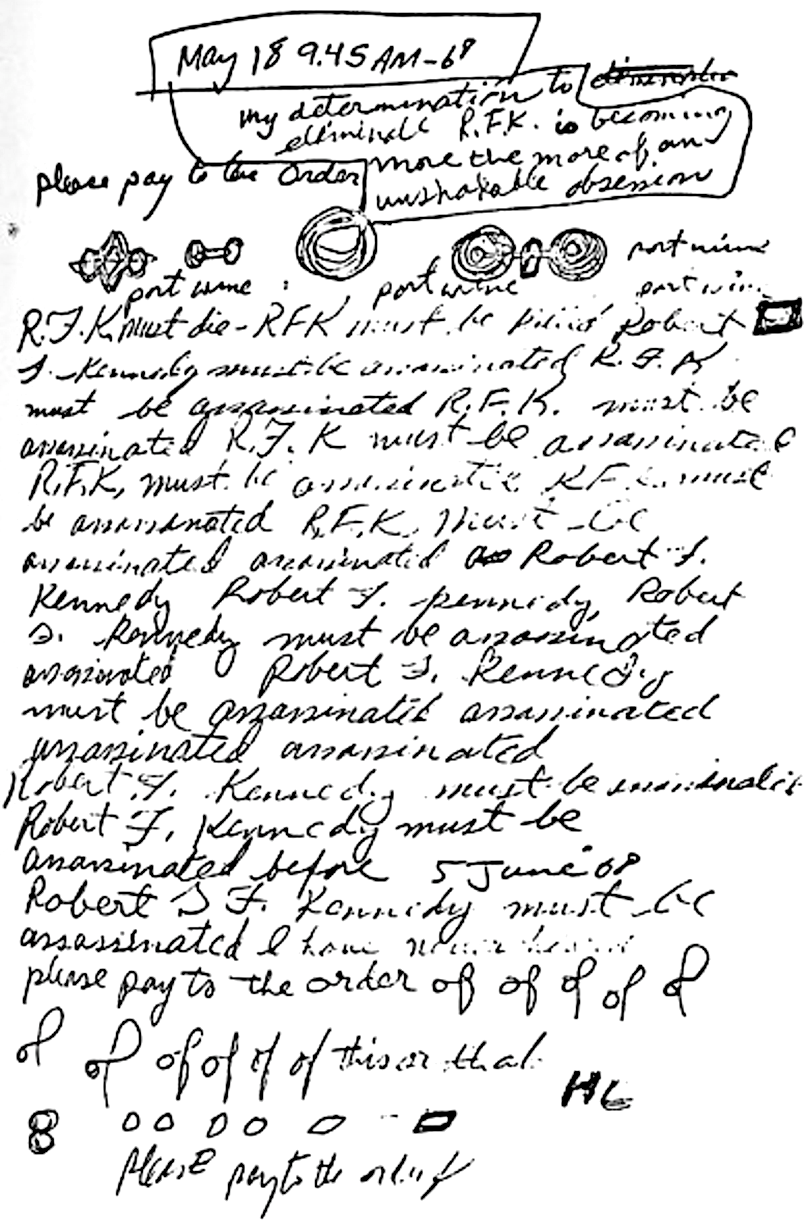 May 18 9.45 AM-68
my determination to
eliminate R.F.K. is becoming
please pay to the order
more the more of an
unshakable obsession
port wine
port wine port wine port wine
R.F.K. must die - RFK must be killed Robert
F. Kennedy must be assassinated R.F.K
must be assassinated R.F.K. must be
assassinated R.F.K must be assassinated
R.F.K. must be assassinated R.F.K. must
be assassinated R.F.K. must be
assassinated assassinated Robert F.
Kennedy Robert F. Kennedy, Robert
F. Kennedy must be assassinated
assassinated Robert F. Kennedy
must be assassinated assassinated
assassinated assassinated
Robert F. Kennedy must be assassinated
Robert F. Kennedy must be
assassinated before 5 June '68
Robert F. Kennedy must be
assassinated I have never heard
please pay to the order of of of of of
of of of of of of this or that
8 0 0 0 0 0
please pay to the order of